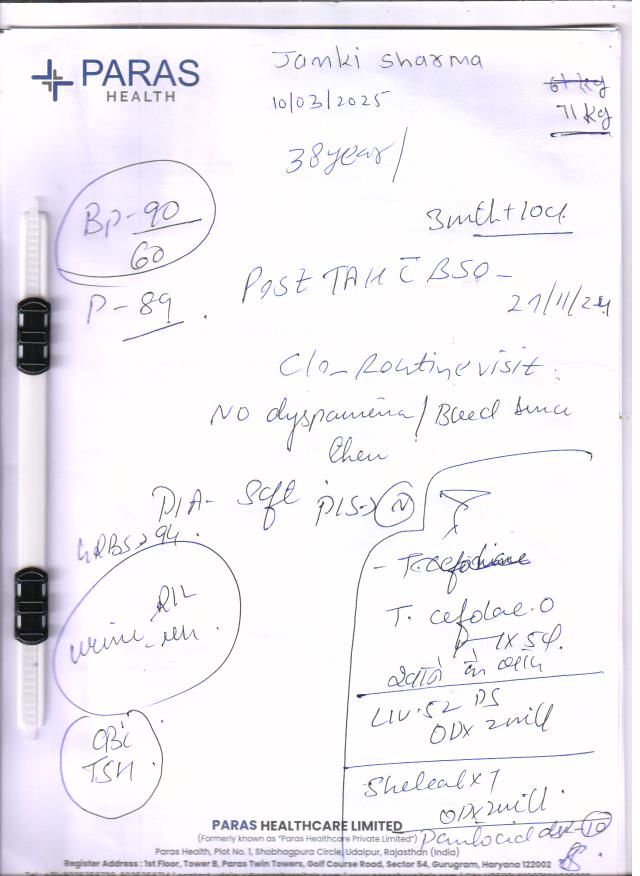 PARAS
HEALTH
Janki Sharma
10/03/2025
61 kg
71 kg
38 year/
BP-90
60
3mth + 10d
P-89
Post TAH C̄ BSO-
C/O Routine visit.
NO dyspamenia / Bleed since
then
P/A- Soft P/S → N
GRBS → 94.
R/L
urine
T. cefolac.O
1 X 5d.
LIV.52 DS
OD x 2 mth
CBC
TSH
Shelcal x T
OD x 2 mth.
Pantocid dsr - 10
PARAS HEALTHCARE LIMITED
(Formerly known as "Paras Healthcare Private Limited")
Paras Health, Plot No. 1, Shobhagpura Circle, Udaipur, Rajasthan (India)
Register Address : 1st Floor, Tower B, Paras Twin Towers, Golf Course Road, Sector 54, Gurugram, Haryana 122002